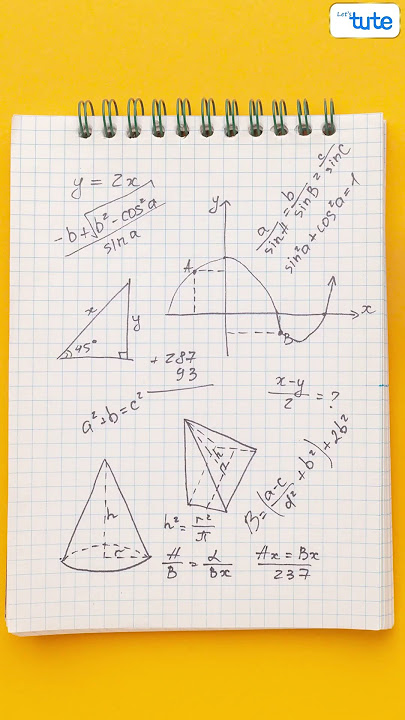 Let's
tute
y = 2x
-b+√b²-cos²a
sin a
y
a/sinA = b/sinB = c/sinC
sin²a + cos²a = 1
A
x
B
x
y
45°
+ 287
93
a²+b=c²
x-y/2 = ?
B=(a-c/d² + b²)+2b²
h
r
h² = r²/π
A/B = L/Bx
Ax = Bx
237